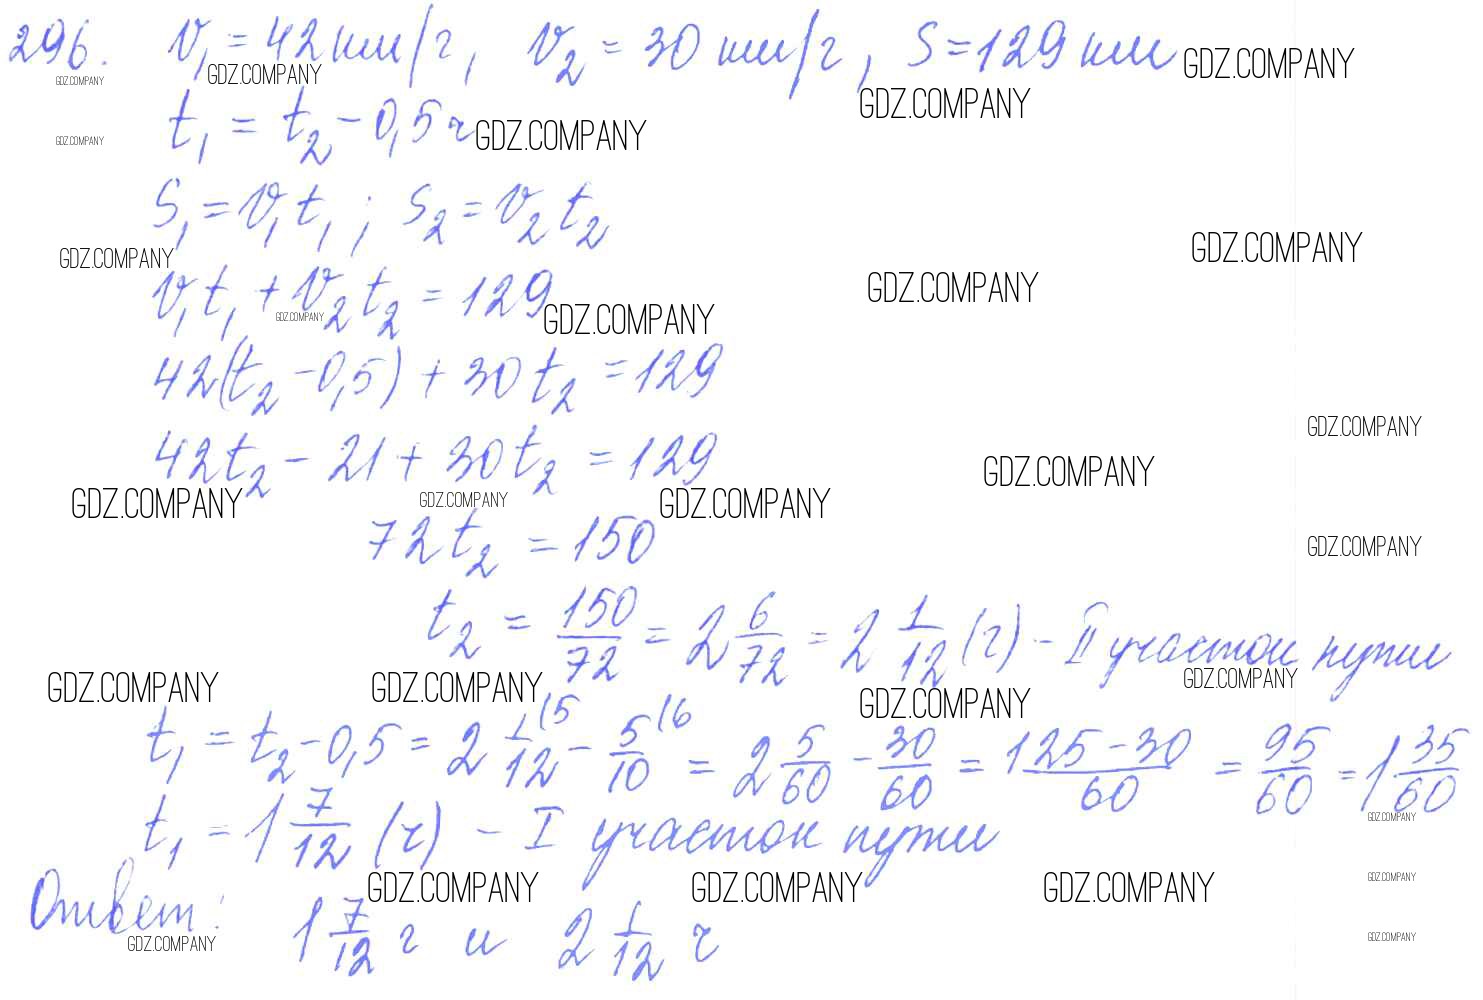 296. v₁ = 42 км/ч, v₂ = 30 км/ч, S = 129 км GDZ.COMPANY
GDZ.COMPANY GDZ.COMPANY GDZ.COMPANY
t₁ = t₂ - 0,5 ч GDZ.COMPANY
GDZ.COMPANY
S₁ = v₁t₁; S₂ = v₂t₂
GDZ.COMPANY GDZ.COMPANY
v₁t₁ + v₂t₂ = 129 GDZ.COMPANY
GDZ.COMPANY GDZ.COMPANY
42(t₂ - 0,5) + 30t₂ = 129
GDZ.COMPANY
42t₂ - 21 + 30t₂ = 129 GDZ.COMPANY
GDZ.COMPANY GDZ.COMPANY GDZ.COMPANY
72t₂ = 150
GDZ.COMPANY
t₂ = 150/72 = 2 6/72 = 2 1/12 (ч) - II участок пути
GDZ.COMPANY GDZ.COMPANY GDZ.COMPANY GDZ.COMPANY
t₁ = t₂ - 0,5 = 2 1/12 (5 - 5/10 (6 = 2 5/60 - 30/60 = 125-30/60 = 95/60 = 1 35/60
GDZ.COMPANY
t₁ = 1 7/12 (ч) - I участок пути
GDZ.COMPANY GDZ.COMPANY GDZ.COMPANY GDZ.COMPANY
Ответ: 1 7/12 ч и 2 1/12 ч
GDZ.COMPANY GDZ.COMPANY